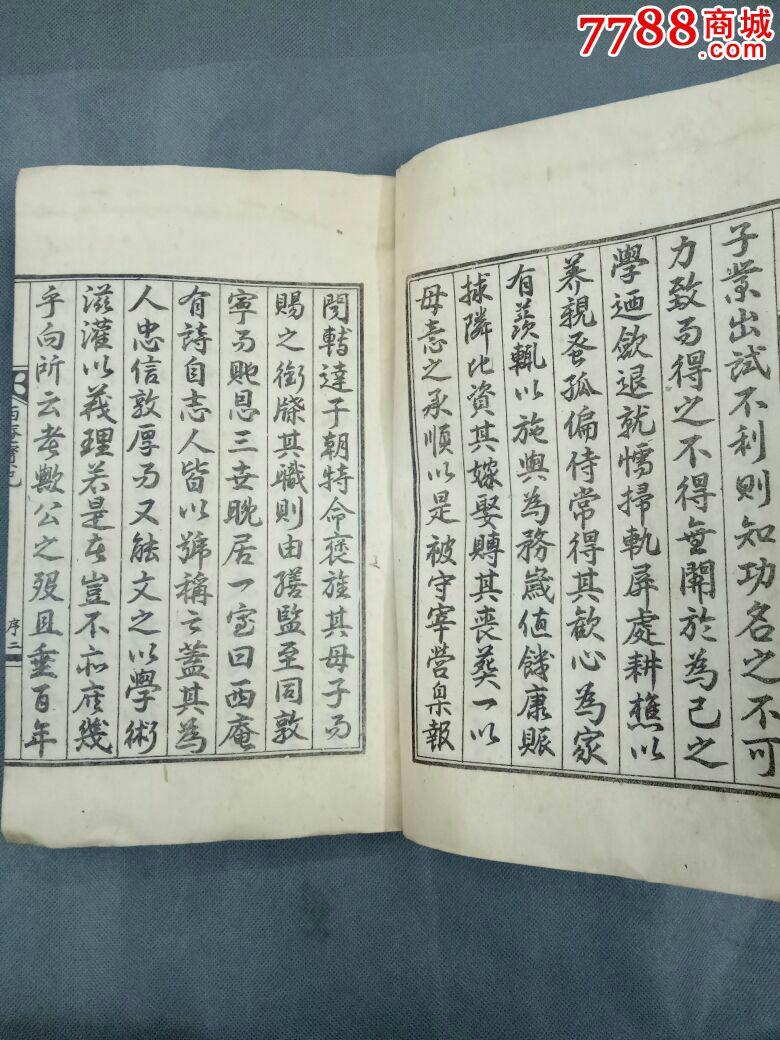 7788商城
.com
子業出試不利則知功名之不可
力致而得之不得無關於為己之
學迺斂退就懦掃軌屏處耕樵以
養親蚤孤偏侍常得其歡心為家
有羨輒以施與為務歲値饑康賑
捄隣比資其嫁娶賻其喪葬一以
母意之承順以是被守宰營臬報
閔轉達于朝特命褒旌其母子而
賜之銜牒其職則由繕監至同敦
寧而貤恩三世晚居一室曰西庵
有詩自志人皆以號稱云蓋其為
人忠信敦厚而又能文之以學術
滋灌以義理若是在豈不亦庶幾
乎向所云者歟公之歿且垂百年
序二